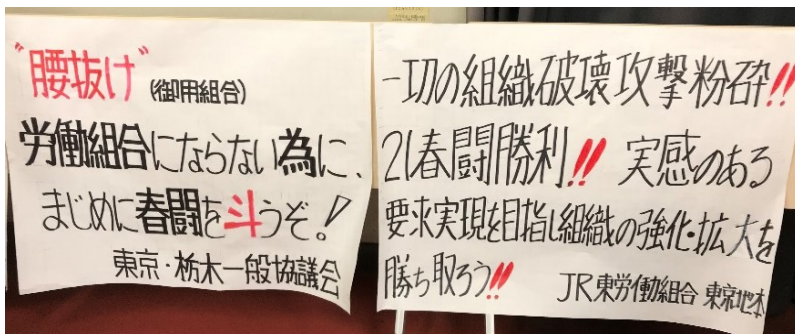 "腰抜け"(御用組合)
労働組合にならない為に、
まじめに春闘を斗うぞ!
東京・栃木一般協議会
一切の組織破壊攻撃粉砕!!
21春闘勝利!! 実感のある
要求実現を目指し組織の強化・拡大を
勝ち取ろう!! JR東労働組合 東京地本